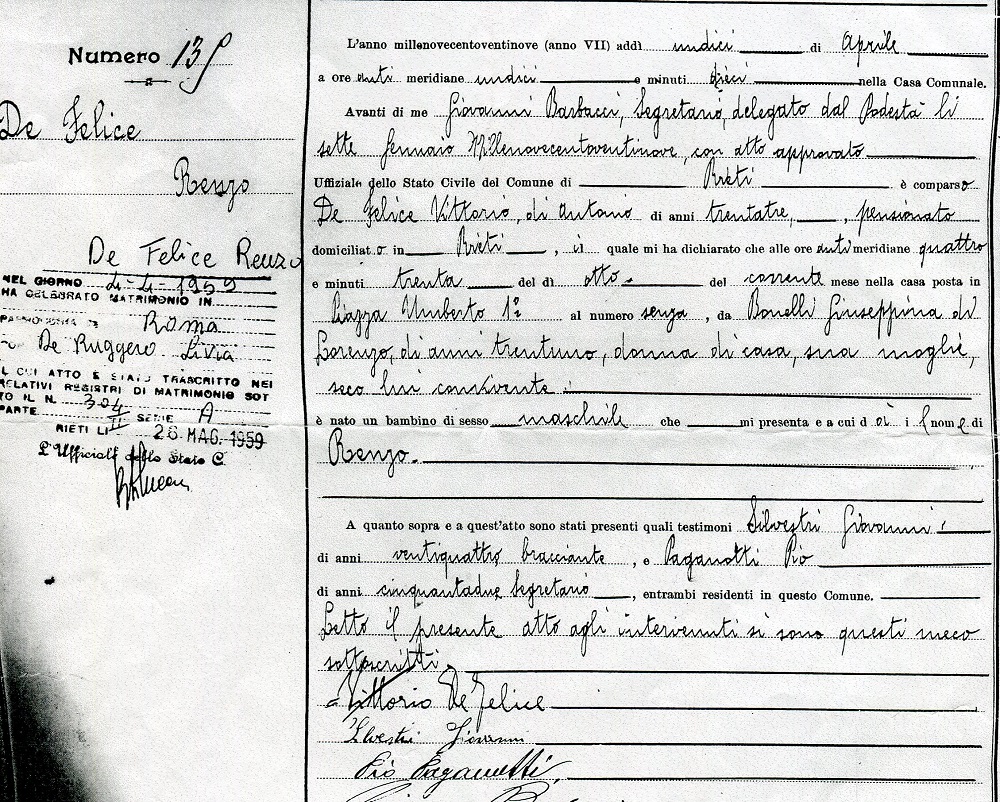 Numero 13
De Felice
Renzo
De Felice Renzo
NEL GIORNO 4-4-1959
HA CELEBRATO MATRIMONIO IN
Roma
De Ruggero Livia
IL CUI ATTO È STATO TRASCRITTO NEI
RELATIVI REGISTRI DI MATRIMONIO SOT
TO IL N. 304
PARTE II SERIE A
RIETI LI 26 MAG. 1959
L'Ufficiale dello Stato C.
L'anno millenovecentoventinove (anno VII) addì undici di Aprile
a ore anti meridiane undici e minuti dieci nella Casa Comunale.
Avanti di me Giovanni Barbacci, Segretario, delegato dal Podestà li
sette Gennaio Millenovecentoventinove, con atto approvato
Uffiziale dello Stato Civile del Comune di Rieti è comparso
De Felice Vittorio, di Antonio di anni trentatre, pensionato
domiciliato in Rieti, il quale mi ha dichiarato che alle ore anti meridiane quattro
e minuti trenta del dì otto del corrente mese nella casa posta in
Piazza Umberto 1° al numero senza, da Bonelli Giuseppina di
Lorenzo, di anni trentuno, donna di casa, sua moglie,
seco lui convivente
è nato un bambino di sesso maschile che mi presenta e a cui dà i l nome di
Renzo.
A quanto sopra e a quest'atto sono stati presenti quali testimoni Silvestri Giovanni
di anni ventiquattro, bracciante, e Paganotti Pio
di anni cinquantadue Segretario, entrambi residenti in questo Comune.
Letto il presente atto agli intervenuti si sono questi meco
sottoscritti.
Vittorio De Felice
Silvestri Giovanni
Pio Paganotti